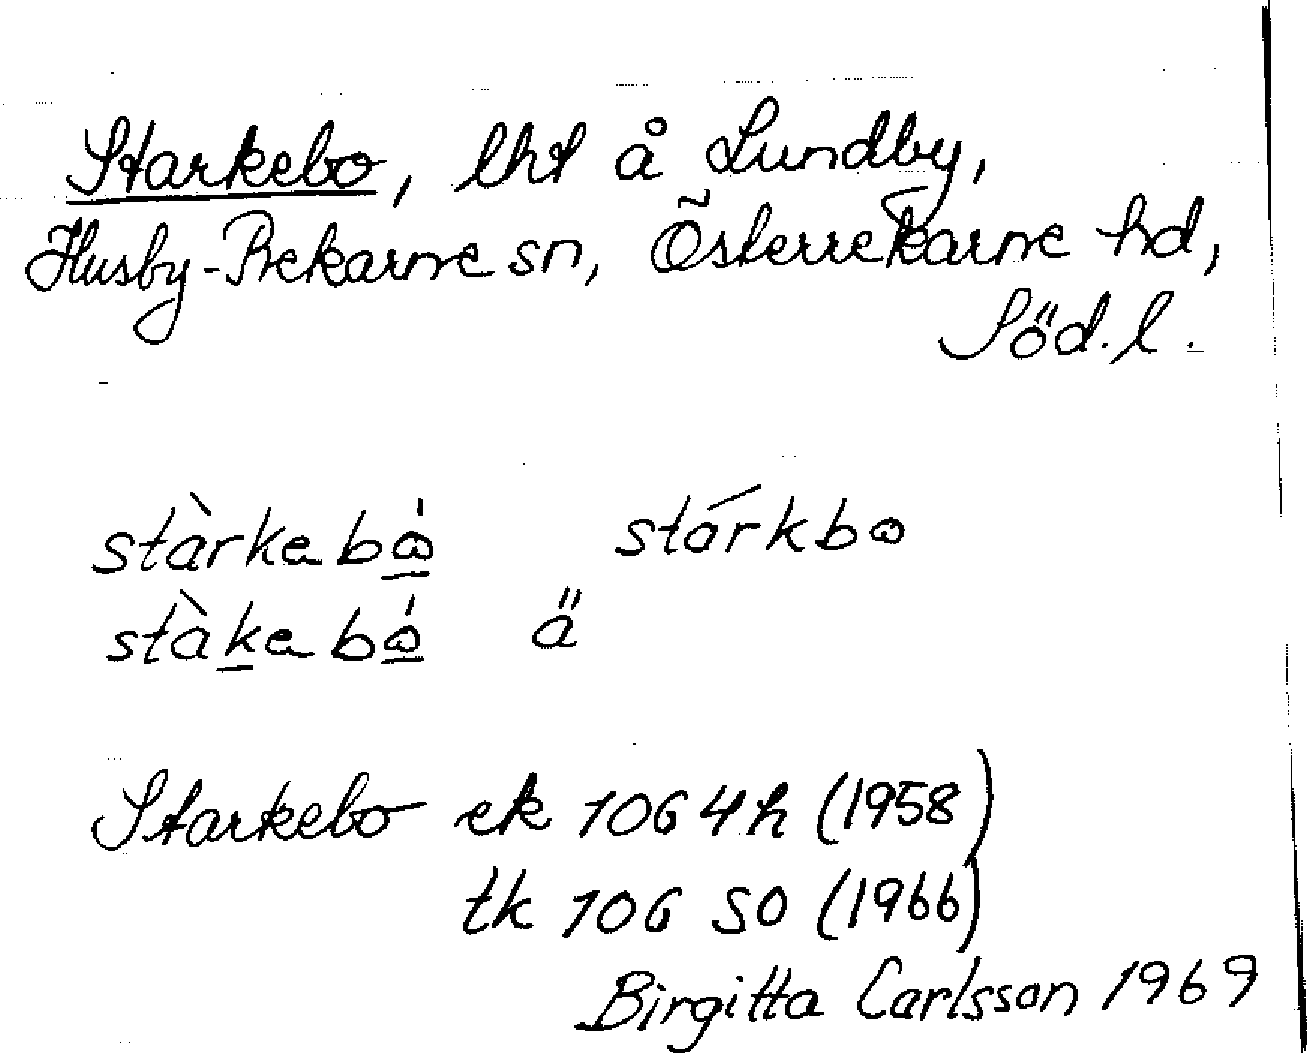 Starkebo, lht å Lundby,
Husby-Rekarne sn, Österrekarne hd,
Söd. l.
stàrkebò stárkbo
stàkebò ä
Starkebo ek 106 4h (1958)
tk 106 SO (1966)
Birgitta Carlsson 1969